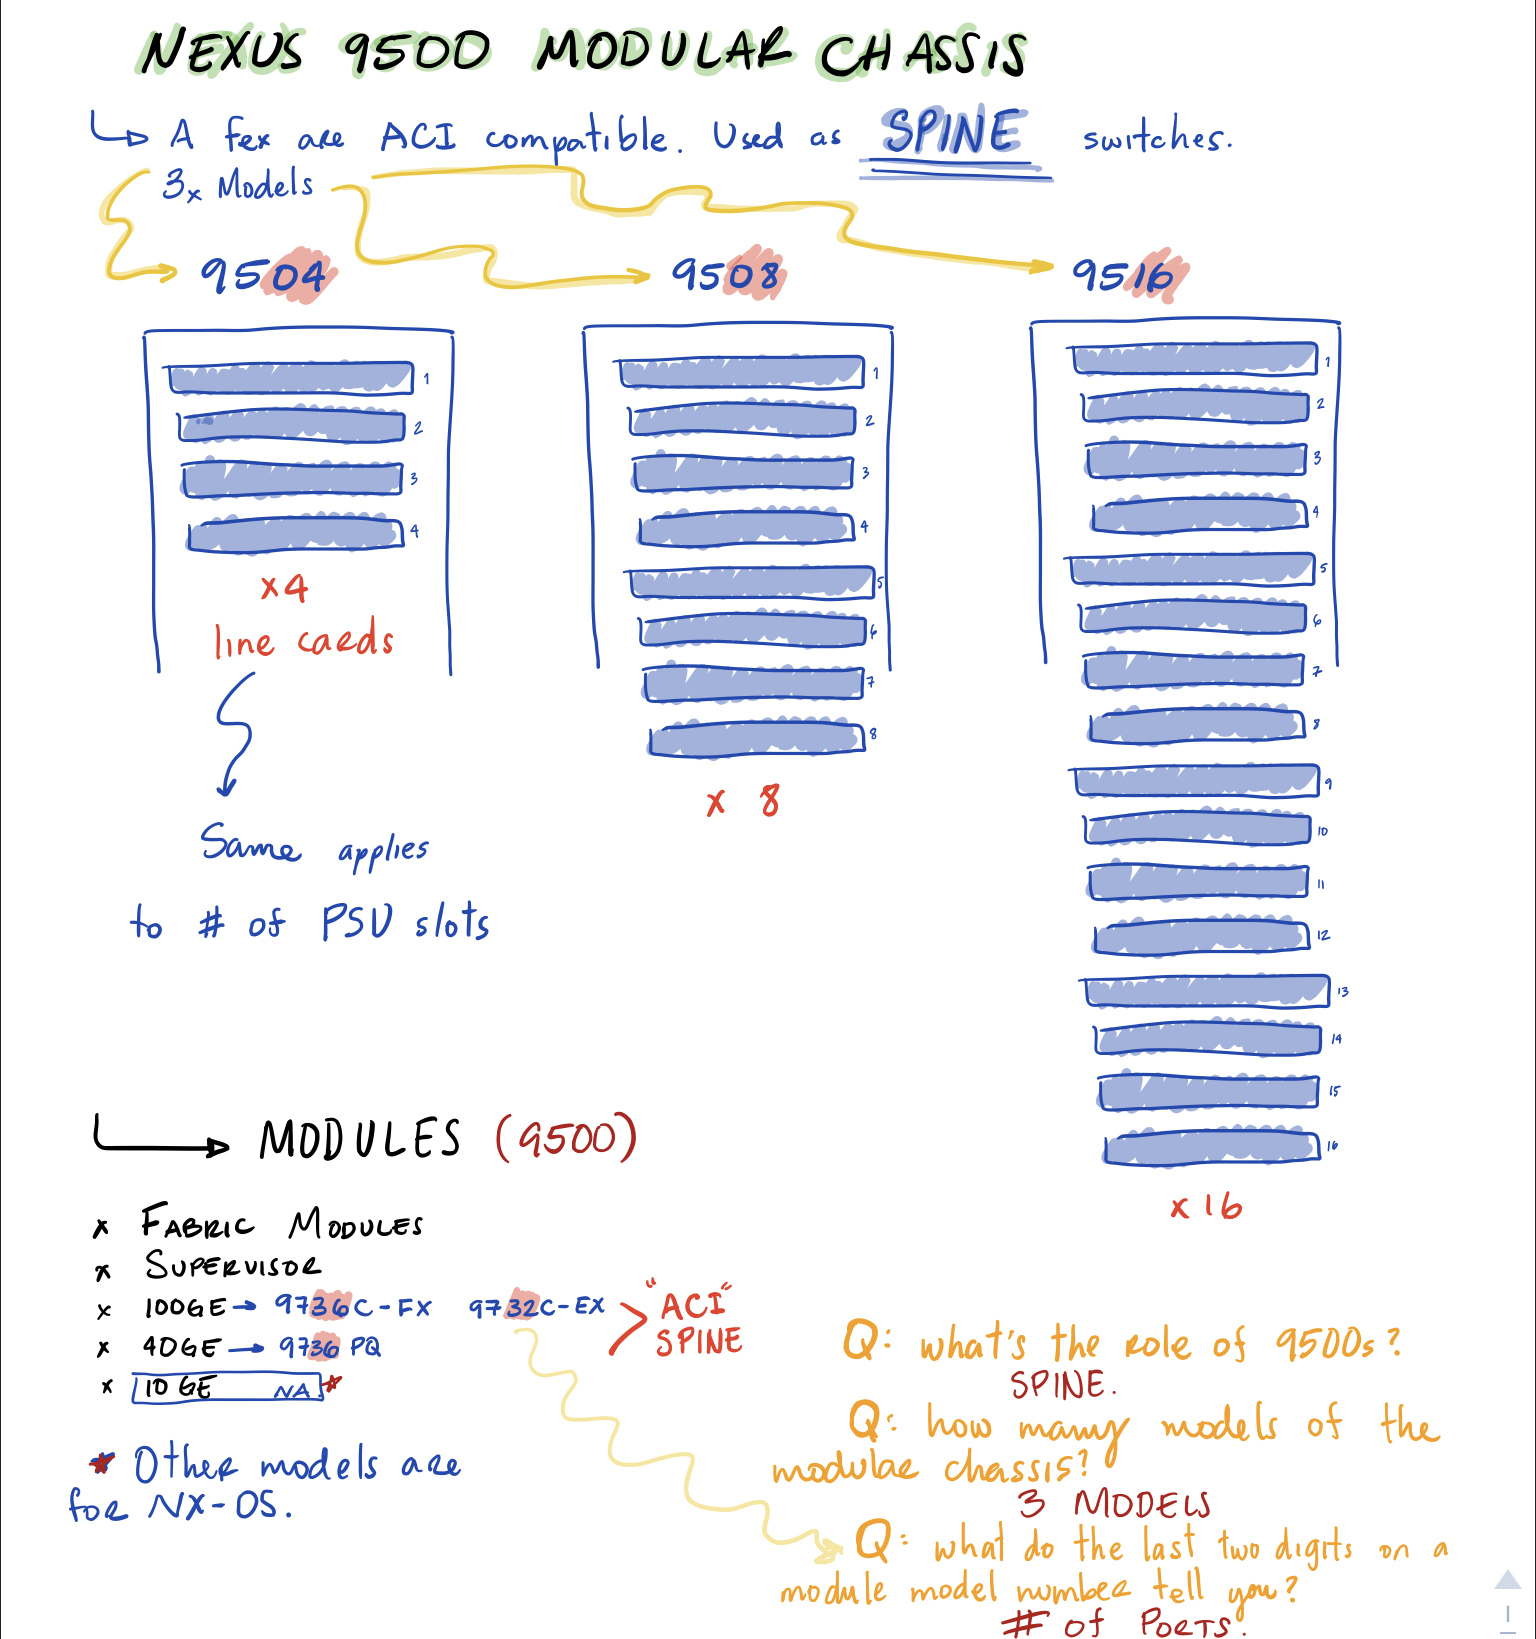 NEXUS 9500 MODULAR CHASSIS
A fex are ACI compatible. Used as SPINE switches.
3x Models
9504 9508 9516
1
2
3
4
x4
line cards
Same applies
to # of PSU slots
1
2
3
4
5
6
7
8
x 8
1
2
3
4
5
6
7
8
9
10
11
12
13
14
15
16
x 16
MODULES (9500)
x FABRIC MODULES
x SUPERVISOR
x 100GE → 9736C-FX 9732C-EX
"ACI"
SPINE
x 40GE → 9736 PQ
x 10GE NA. *
* Other models are
for NX-OS.
Q: what's the role of 9500s?
SPINE.
Q: how many models of the
modular chassis?
3 MODELS
Q: what do the last two digits on a
module model number tell you?
# of PORTS.